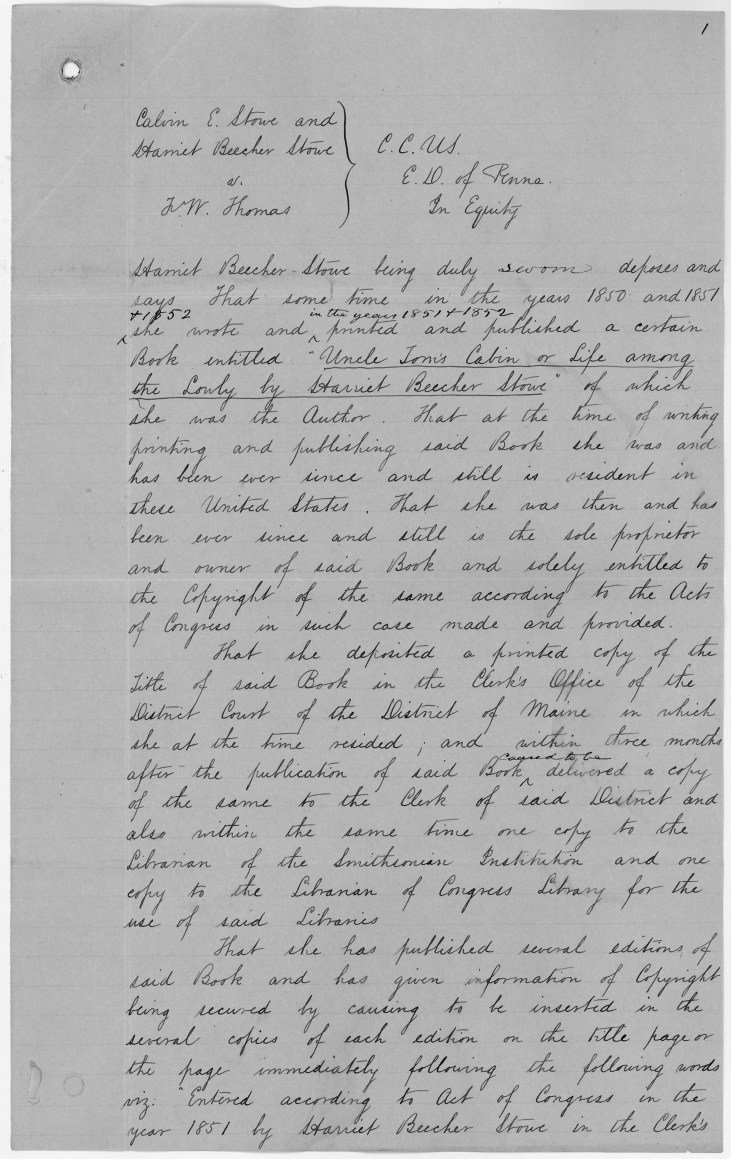 1
Calvin E. Stowe and
Harriet Beecher Stowe
v.
F. W. Thomas
C. C. U.S.
E. D. of Penna.
In Equity
Harriet Beecher Stowe being duly sworn deposes and
says That some time in the years 1850 and 1851
+ 1852 in the years 1851 + 1852
she wrote and printed and published a certain
Book entitled "Uncle Tom's Cabin or Life among
the Lowly by Harriet Beecher Stowe" of which
she was the Author. That at the time of writing
printing and publishing said Book she was and
has been ever since and still is resident in
these United States. That she was then and has
been ever since and still is the sole proprietor
and owner of said Book and solely entitled to
the Copyright of the same according to the Acts
of Congress in such case made and provided.
That she deposited a printed copy of the
Title of said Book in the Clerk's Office of the
District Court of the District of Maine in which
she at the time resided; and within three months
caused to be
after the publication of said Book delivered a copy
of the same to the Clerk of said District and
also within the same time one copy to the
Librarian of the Smithsonian Institution and one
copy to the Librarian of Congress Library for the
use of said Libraries
That she has published several editions of
said Book and has given information of Copyright
being secured by causing to be inserted in the
several copies of each edition on the title page or
the page immediately following the following words
viz: "Entered according to Act of Congress in the
year 1851 by Harriet Beecher Stowe in the Clerk's